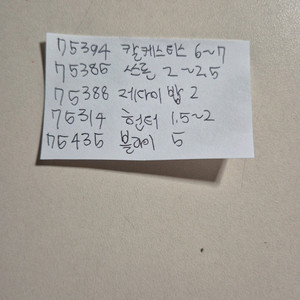 75394 칼케스티스 6~7
75385 쓰론 2~2.5
75388 제다이 밥 2
75314 헌터 1.5~2
75435 플라이 5